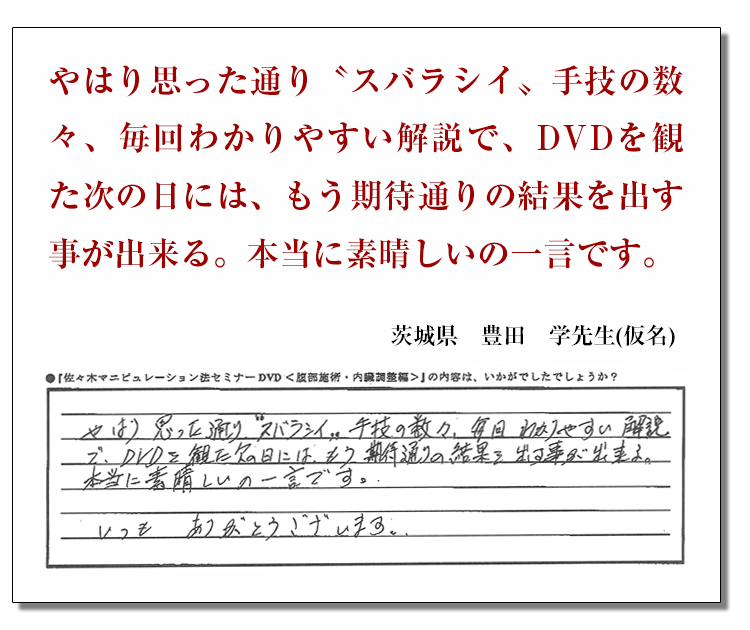 やはり思った通り〝スバラシイ〟手技の数
々、毎回わかりやすい解説で、DVDを観
た次の日には、もう期待通りの結果を出す
事が出来る。本当に素晴しいの一言です。
茨城県　豊田　学先生(仮名)
●『佐々木マニピュレーション法セミナーDVD＜腹部施術・内臓調整編＞』の内容は、いかがでしたでしょうか？
やはり思った通り〝スバラシイ〟手技の数々、毎回わかりやすい解説
で、DVDを観た次の日には、もう期待通りの結果を出す事が出来る。
本当に素晴しいの一言です。
いつも　ありがとうございます。